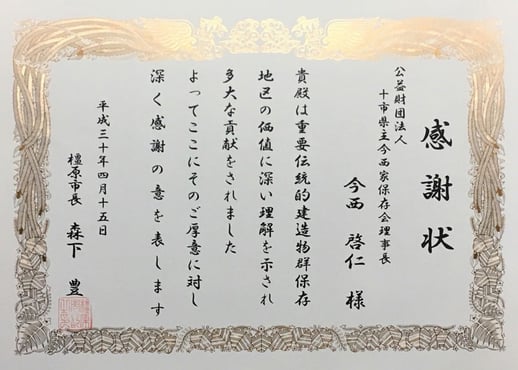 感謝状
公益財団法人
十市県主今西家保存会理事長
今西 啓仁 様
貴殿は重要伝統的建造物群保存
地区の価値に深い理解を示され
多大な貢献をされました
よってここにそのご厚意に対し
深く感謝の意を表します
平成三十年四月十五日
橿原市長 森下 豊